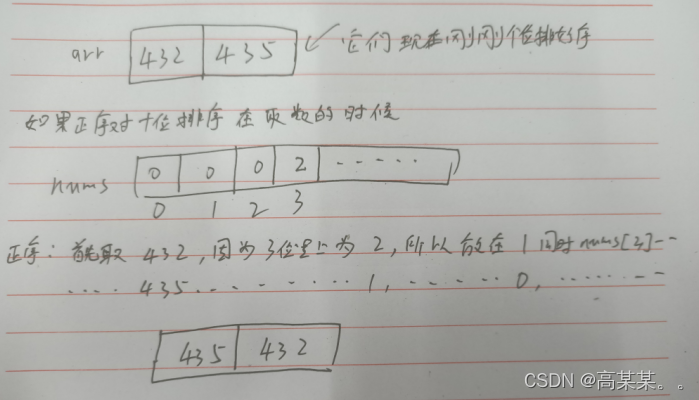 arr 432 435 它们现在刚刚个位排好序
如果正序对十位排序 在取数的时候
nums 0 0 0 2 .....
0 1 2 3
正序: 首先取 432, 因为3位置上为 2, 所以放在 1 同时nums[3]--
.... 435........ 1, ...... 0, ........
435 432
CSDN @高某某。。